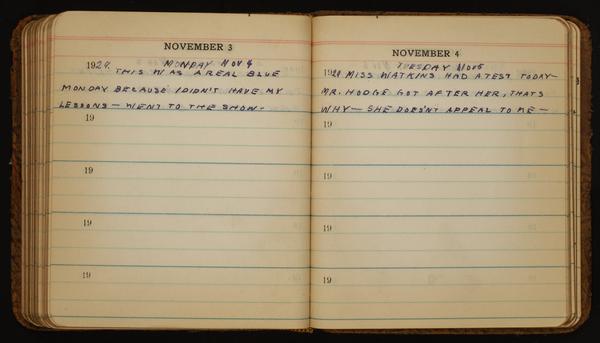 NOVEMBER 3
1929. MONDAY NOV 4
THIS WAS A REAL BLUE
MONDAY BECAUSE I DIDN'T HAVE MY
LESSONS — WENT TO THE SHOW.
19
19
19
19
NOVEMBER 4
TUESDAY NOV 5
1929 MISS WATKINS HAD A TEST TODAY—
MR. HODGE GOT AFTER HER, THATS
WHY — SHE DOESN'T APPEAL TO ME —
19
19
19
19